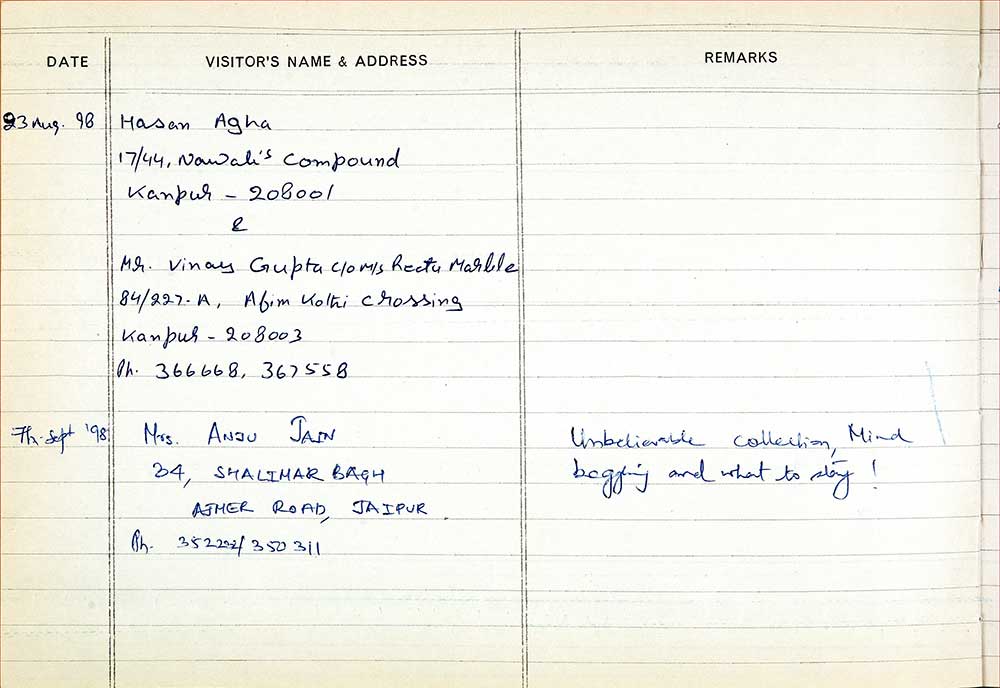 DATE VISITOR'S NAME & ADDRESS REMARKS
23 Aug. 98 Hasan Agha
17/44, Nawab's Compound
Kanpur - 208001
&
Mr. Vinay Gupta c/o M/s Marble
84/227-A, Afim Kothi Crossing
Kanpur - 208003
Ph. 366668, 367558
7th Sept '98 Mrs. ANJU JAIN
34, SHALIMAR BAGH
AJMER ROAD, JAIPUR
Ph. 350311
Unbelievable collection, Mind
and what to say!